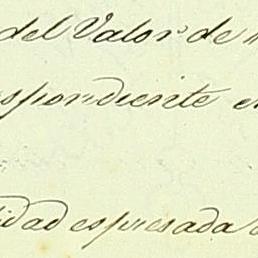 del Valor de
spondiente e
idad espresada